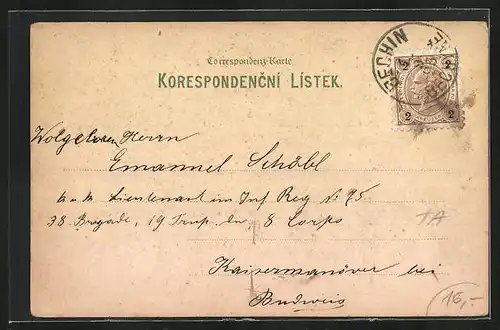 Correspondenz-Karte
KORESPONDENČNÍ LÍSTEK.
BECHIN
2 2
2 2
Wolgeboren Herrn
Emanuel Schöbl
k. u. k. Lieutenant im Inf Reg No 75
38 Brigade, 19 Trup. div 8 Corps
TA
Kaisermanöver bei
Budweis
16,-